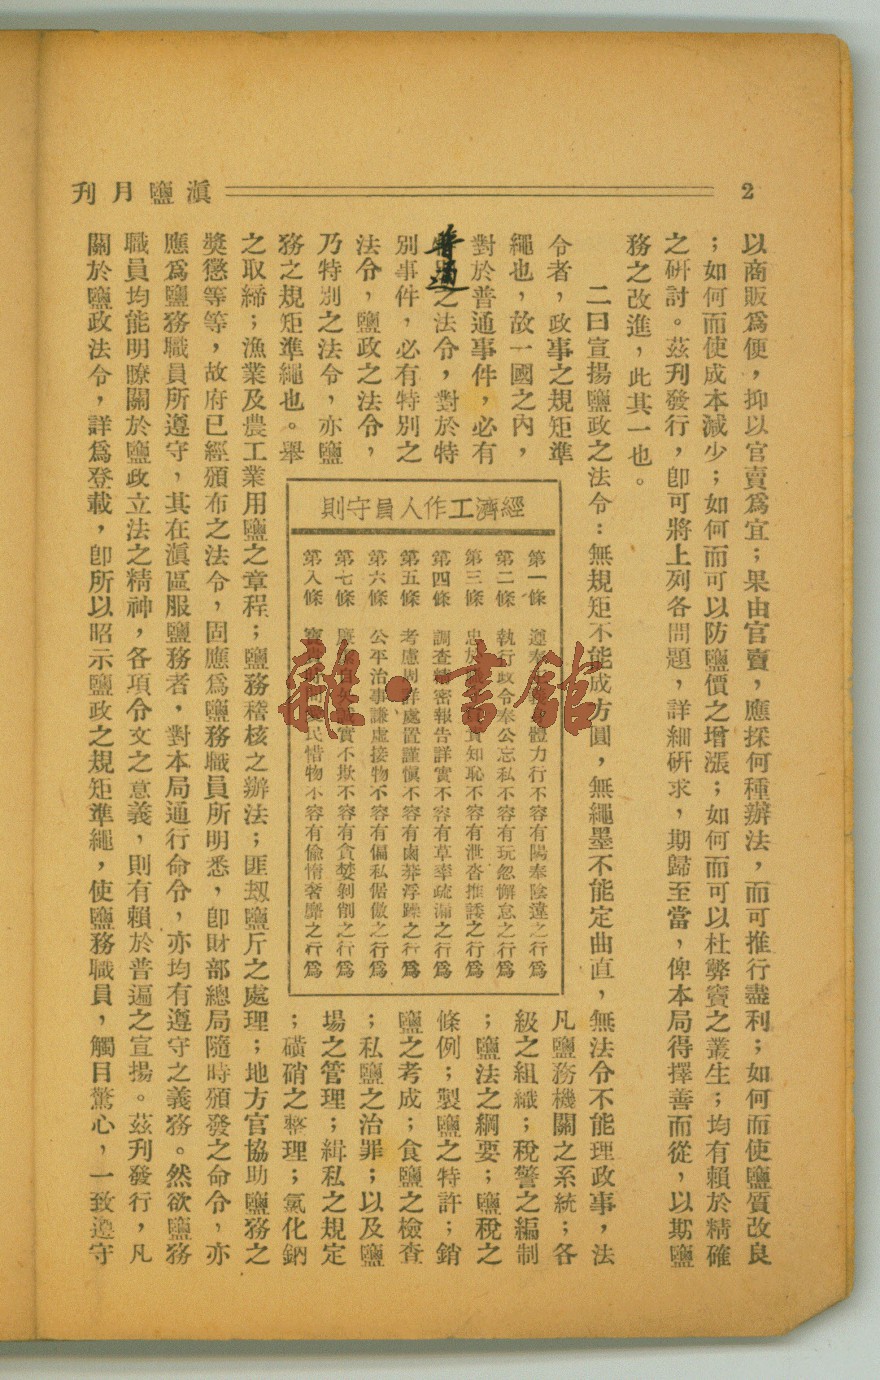 2
滇鹽月刊
以商販爲便，抑以官賣爲宜；果由官賣，應採何種辦法，而可推行盡利；如何而使鹽質改良
；如何而使成本減少；如何而可以防鹽價之增漲；如何而可以杜弊竇之叢生；均有賴於精確
之硏討。茲刊發行，卽可將上列各問題，詳細硏求，期歸至當，俾本局得擇善而從，以期鹽
務之改進，此其一也。
二曰宣揚鹽政之法令：無規矩不能成方圓，無繩墨不能定曲直，無法令不能理政事，法
令者，政事之規矩準
繩也，故一國之內，
對於普通事件，必有
普通之法令，對於特
別事件，必有特別之
法令，鹽政之法令，
乃特別之法令，亦鹽
務之規矩準繩也。舉
經濟工作人員守則
第一條 遵奉 體力行不容有陽奉陰違之行爲
第二條 執行政令奉公忘私不容有玩忽懈怠之行爲
第三條 忠於 知恥不容有泄沓推諉之行爲
第四條 調查精密報告詳實不容有草率疏漏之行爲
第五條 考慮周詳處置謹愼不容有鹵莽浮躁之行爲
第六條 公平治事謙虛接物不容有偏私倨傲之行爲
第七條 廉 實不欺不容有貪婪剝削之行爲
第八條 民惜物不容有偷惰奢靡之行爲
凡鹽務機關之系統；各
級之組織；稅警之編制
；鹽法之綱要；鹽稅之
條例；製鹽之特許；銷
鹽之考成；食鹽之檢查
；私鹽之治罪；以及鹽
場之管理；緝私之規定
；磺硝之整理；氯化鈉
之取締；漁業及農工業用鹽之章程；鹽務稽核之辦法；匪刼鹽斤之處理；地方官協助鹽務之
獎懲等等，故府已經頒布之法令，固應爲鹽務職員所明悉，卽財部總局隨時頒發之命令，亦
應爲鹽務職員所遵守，其在滇區服鹽務者，對本局通行命令，亦均有遵守之義務。然欲鹽務
職員均能明瞭關於鹽政立法之精神，各項令文之意義，則有賴於普遍之宣揚。茲刊發行，凡
關於鹽政法令，詳爲登載，卽所以昭示鹽政之規矩準繩，使鹽務職員，觸目驚心，一致遵守
雜·書館